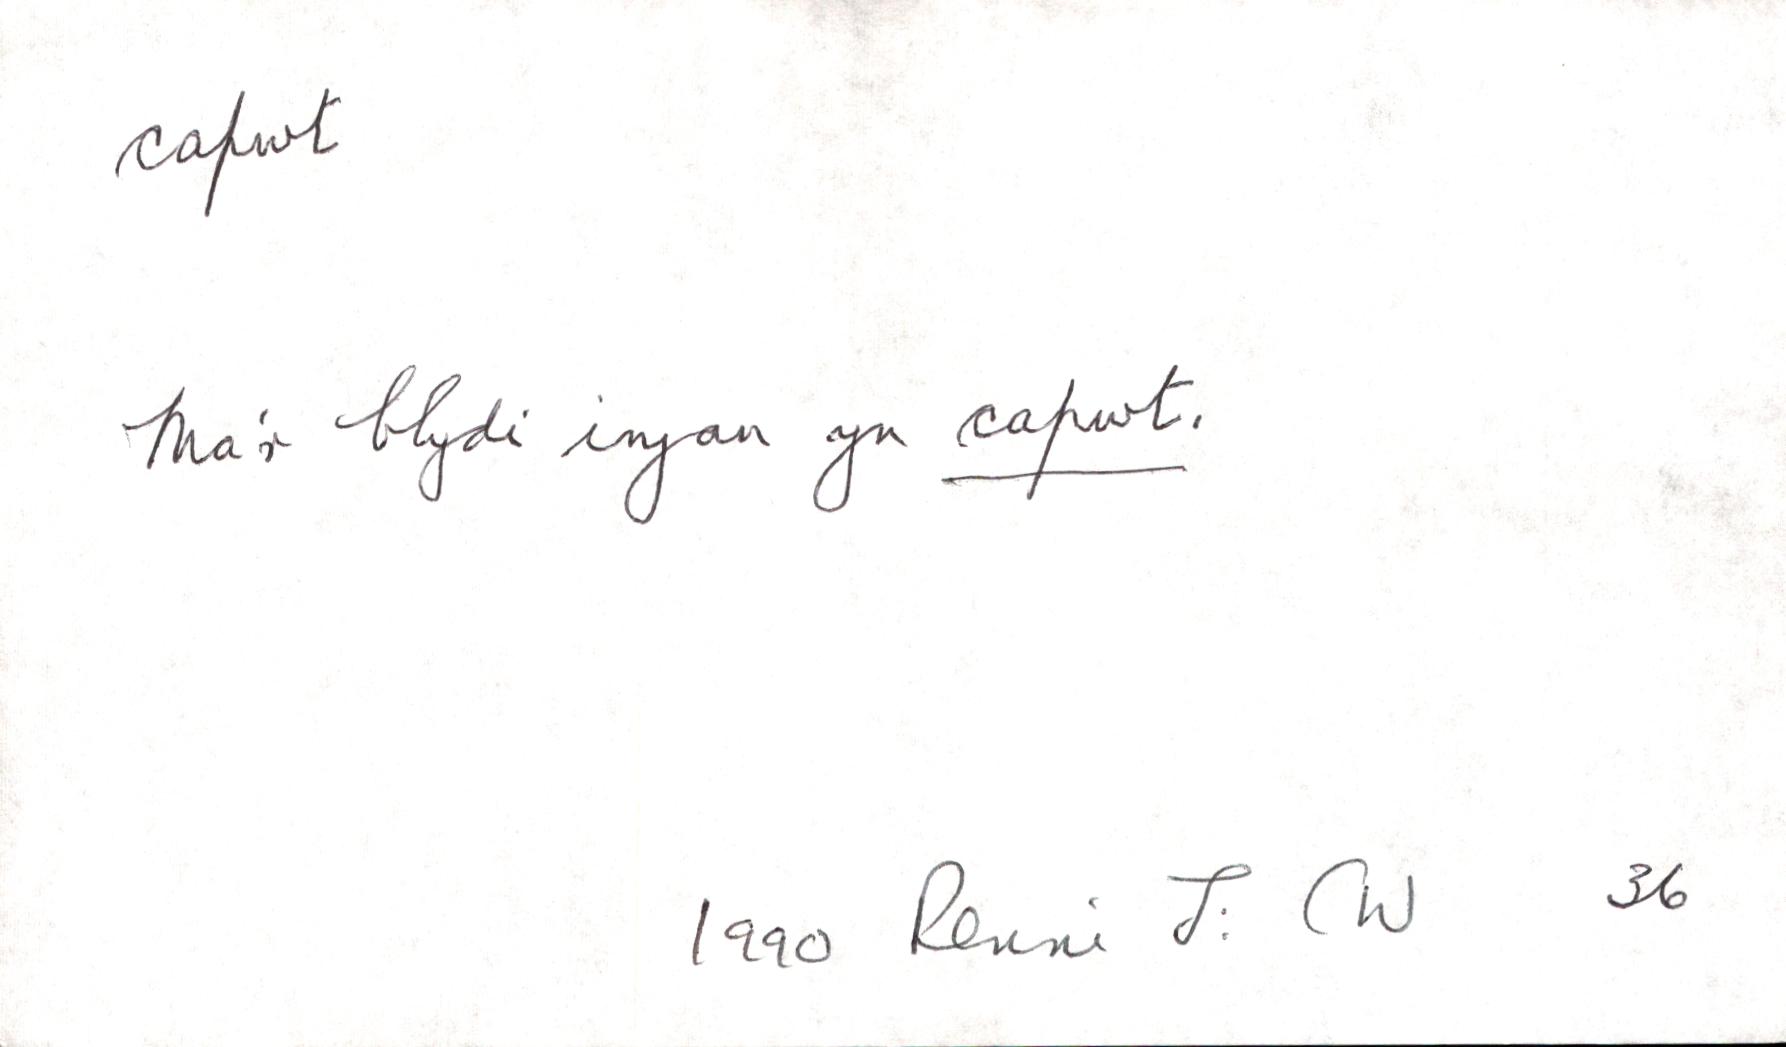 capwt
Ma'r blydi injan yn capwt.
1990 Renni T: CW 36